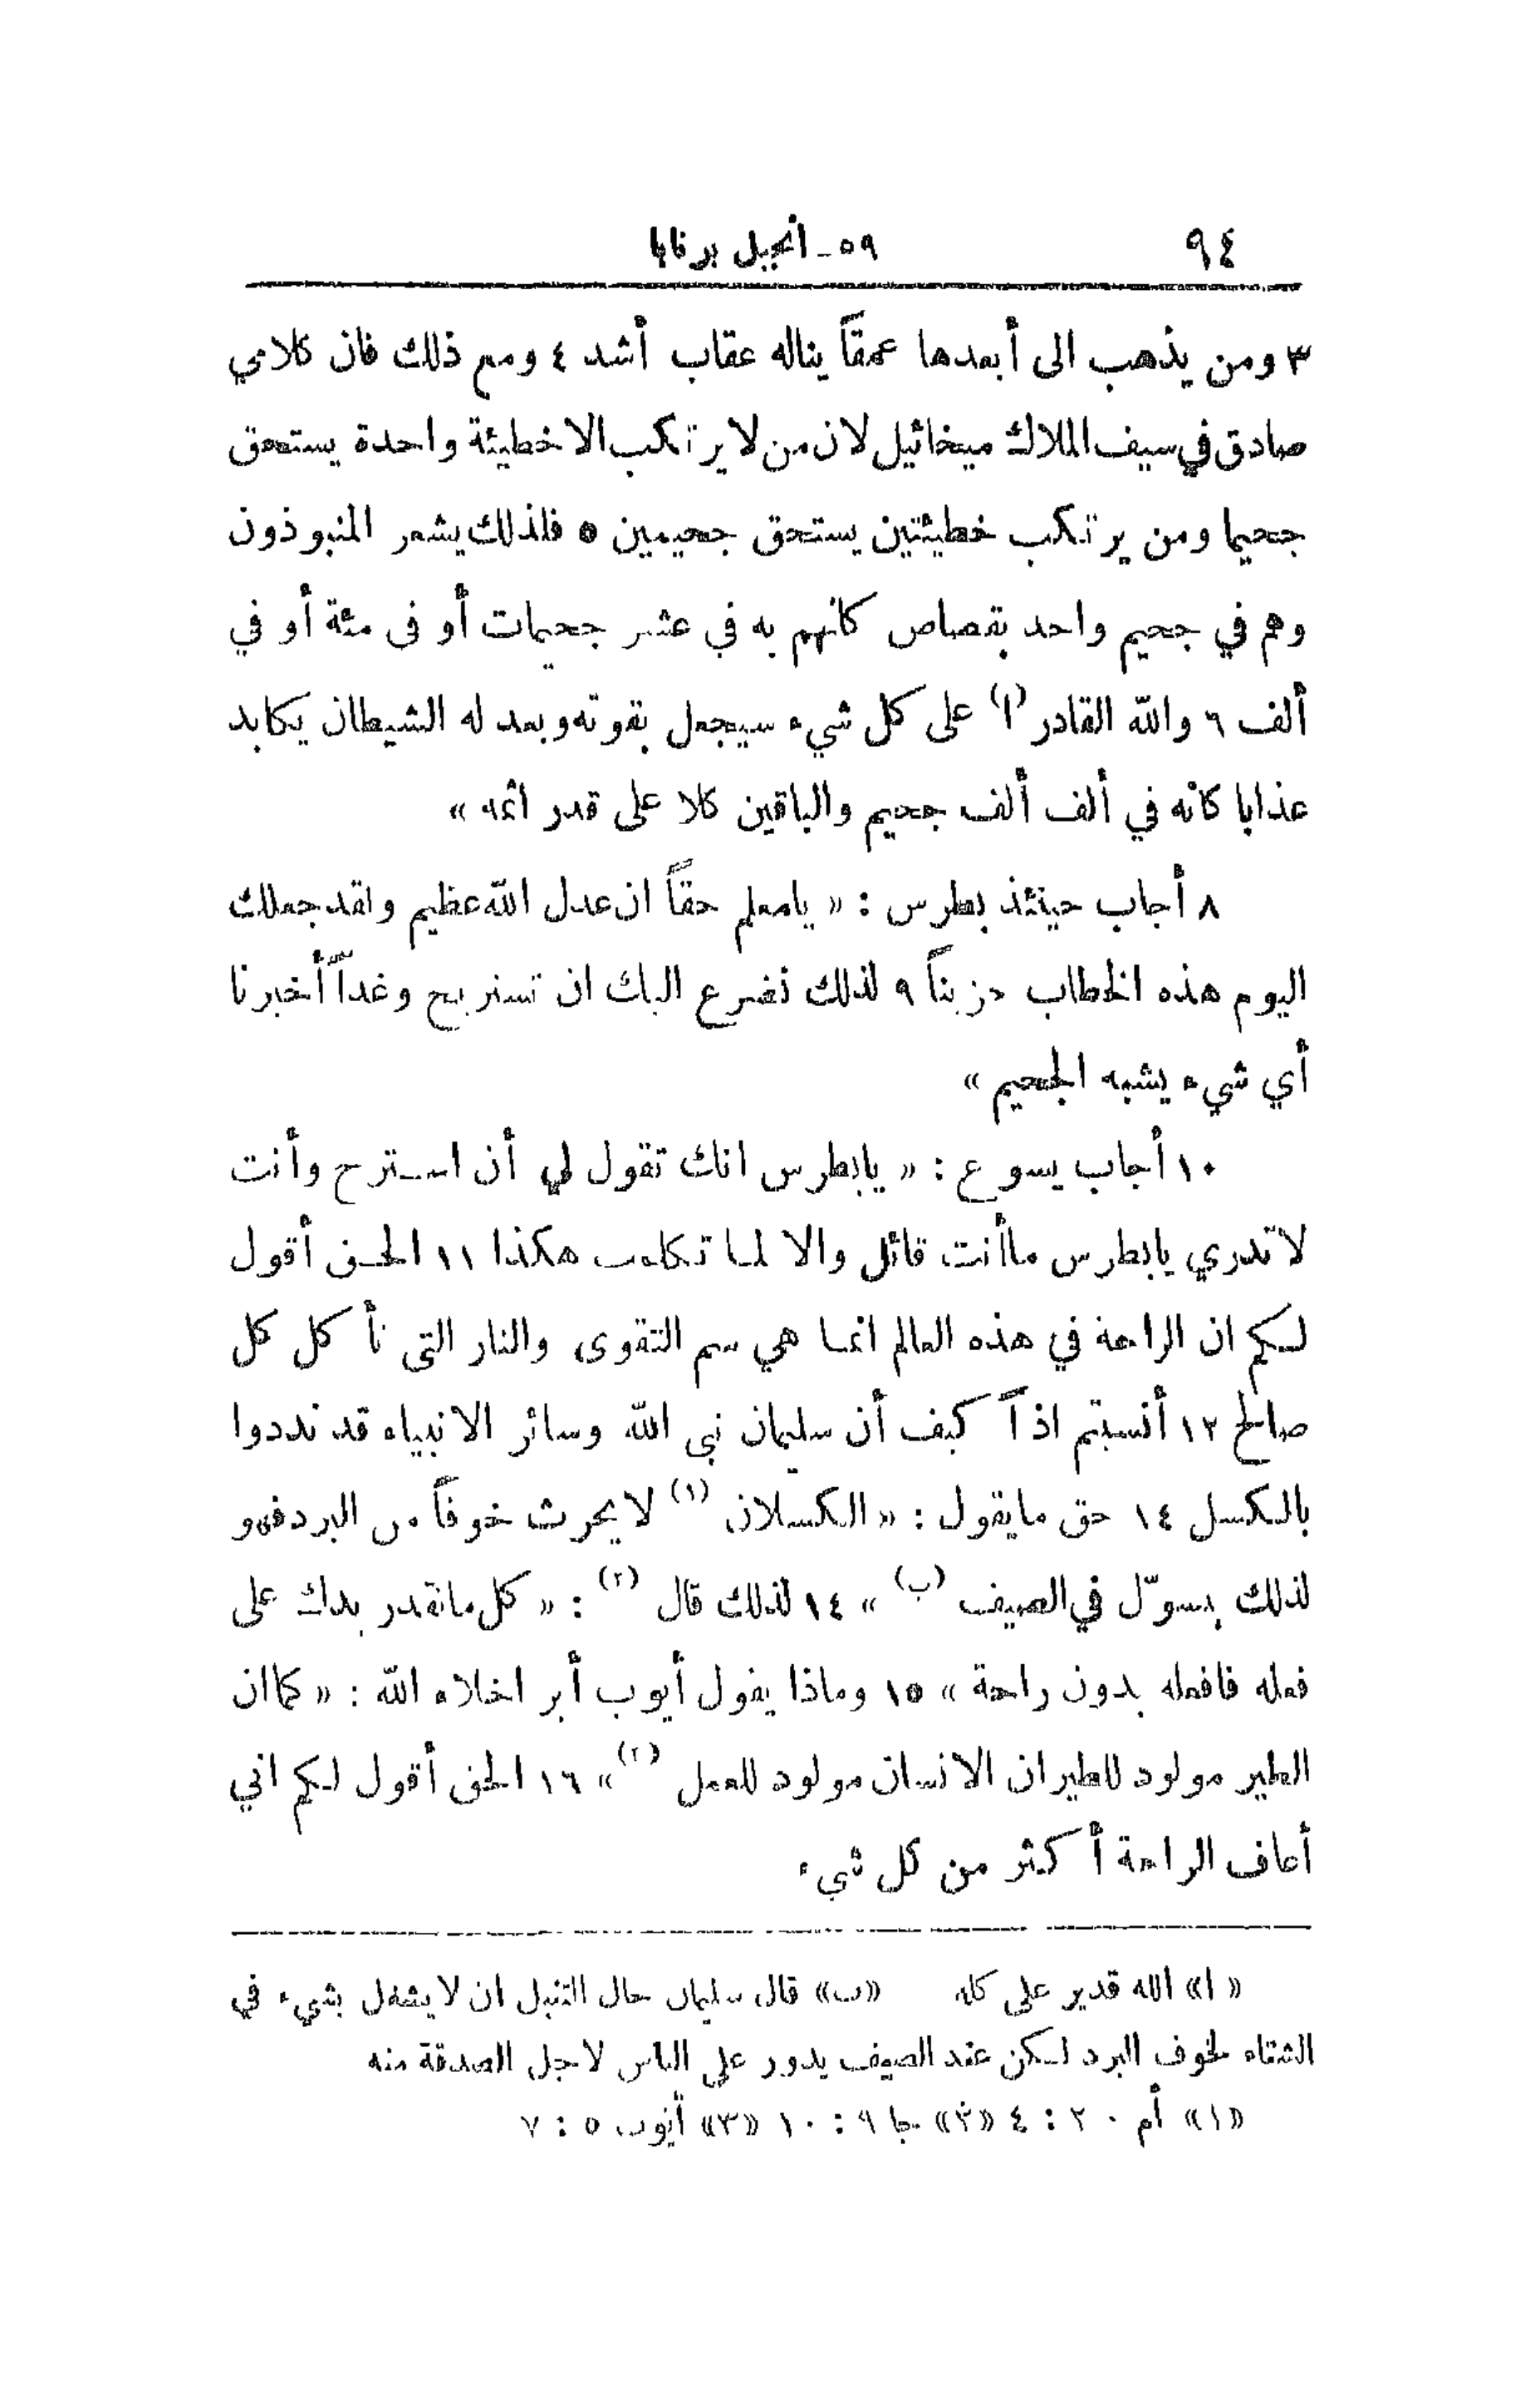 ٩٤ ٥٩ ـ انجيل برنابا
٣ ومن يذهب الى أبعدها عمقاً يناله عقاب أشد ٤ ومع ذلك فان كلامي
صادق في سيف الملاك ميخائيل لان من لا يرتكب الا خطيئة واحدة يستحق
جحيما ومن يرتكب خطيئتين يستحق جحيمين ٥ فلذلك يشعر المنبوذون
وهم في جحيم واحد بقصاص كأنهم به في عشر جحيمات أو فى مئة أو في
ألف ٦ والله القادر (ا) على كل شيء سيجعل بقوته وبعدله الشيطان يكابد
عذابا كانه في ألف ألف جحيم والباقين كلا على قدر اثمه »
٨ أجاب حينئذ بطرس : « يامعلم حقاً ان عدل الله عظيم ولقد جعلك
اليوم هذه الخطاب حزيناً ٩ لذلك نضرع اليك ان تستريح وغداً أخبرنا
أي شيء يشبه الجحيم »
١٠ أجاب يسوع : « يابطرس انك تقول لي أن استرح وأنت
لا تدري يابطرس ماأنت قائل والا لما تكلمت هكذا ١١ الحق أقول
لكم ان الراحة في هذه العالم انما هي سم التقوى والنار التى تأكل كل
صالح ١٢ أنسيتم اذاً كيف أن سليمان نبي الله وسائر الانبياء قد نددوا
بالكسل ١٤ حق مايقول : « الكسلان (١) لا يحرث خوفاً من البرد فهو
لذلك يسوّل في الصيف (ب) » ١٤ لذلك قال (٢) : « كل ماتقدر يدك على
فعله فافعله بدون راحة » ١٥ وماذا يقول أيوب أبر اخلاء الله : « كما ان
الطير مولود للطيران الانسان مولود للعمل (٢) » ١٦ الحق أقول لكم اني
أعاف الراحة أكثر من كل شيء
« ا » الله قدير على كله « ب » قال سليمان حال التنبل ان لا يشغل بشيء في
الشتاء لخوف البرد لكن عند الصيف يدور على الناس لاجل الصدقة منه
« ١ » أم ٢٠ : ٤ « ٢ » جا ٩ : ١٠ « ٣ » أيوب ٥ : ٧